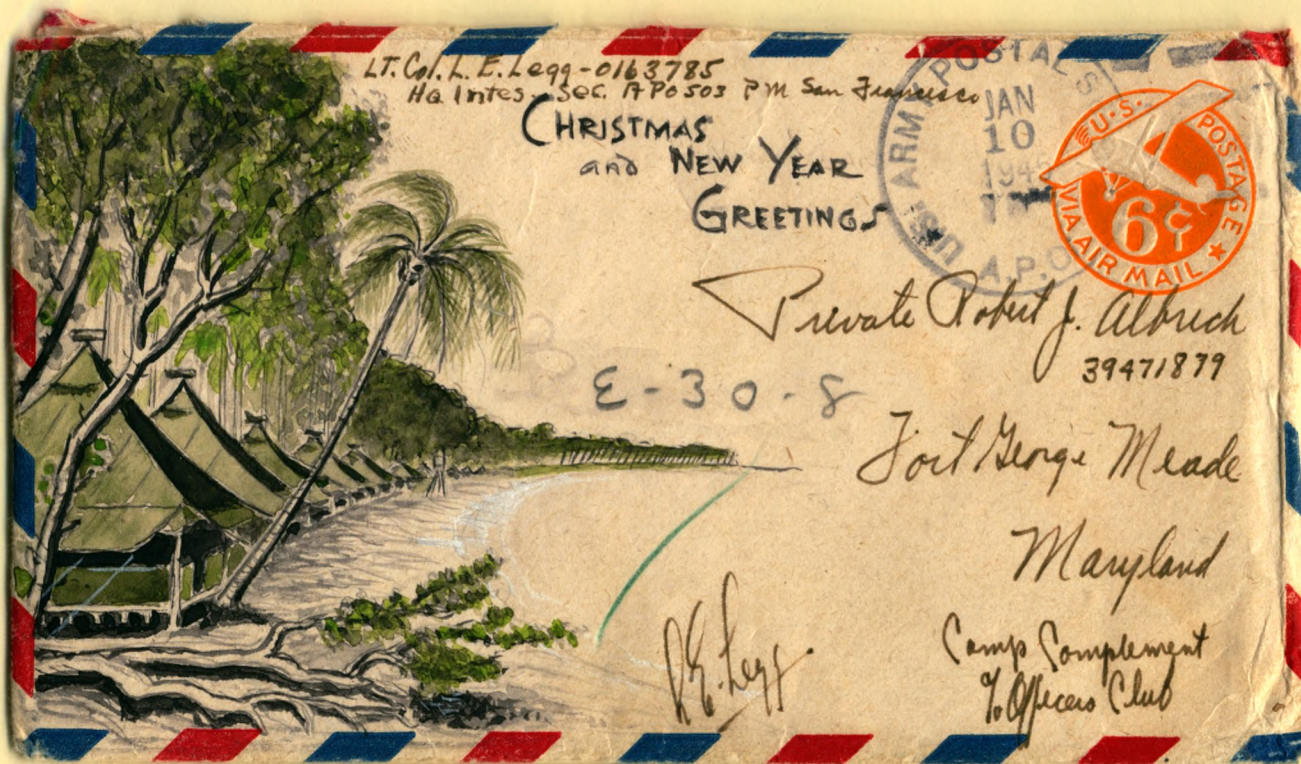 LT. Col. L. E. Legg - 0163785
Hq Intes. Sec. APO 503 PM San Francisco
CHRISTMAS
and NEW YEAR
GREETINGS
U.S. ARMY POSTAL S
JAN
10
A.P.O.
U.S. POSTAGE
6¢
VIA AIR MAIL
Private Robert J. Albrich
39471879
E-30-8
Fort George Meade
Maryland
Camp Complement
℅ Officers Club
L.E. Legg.